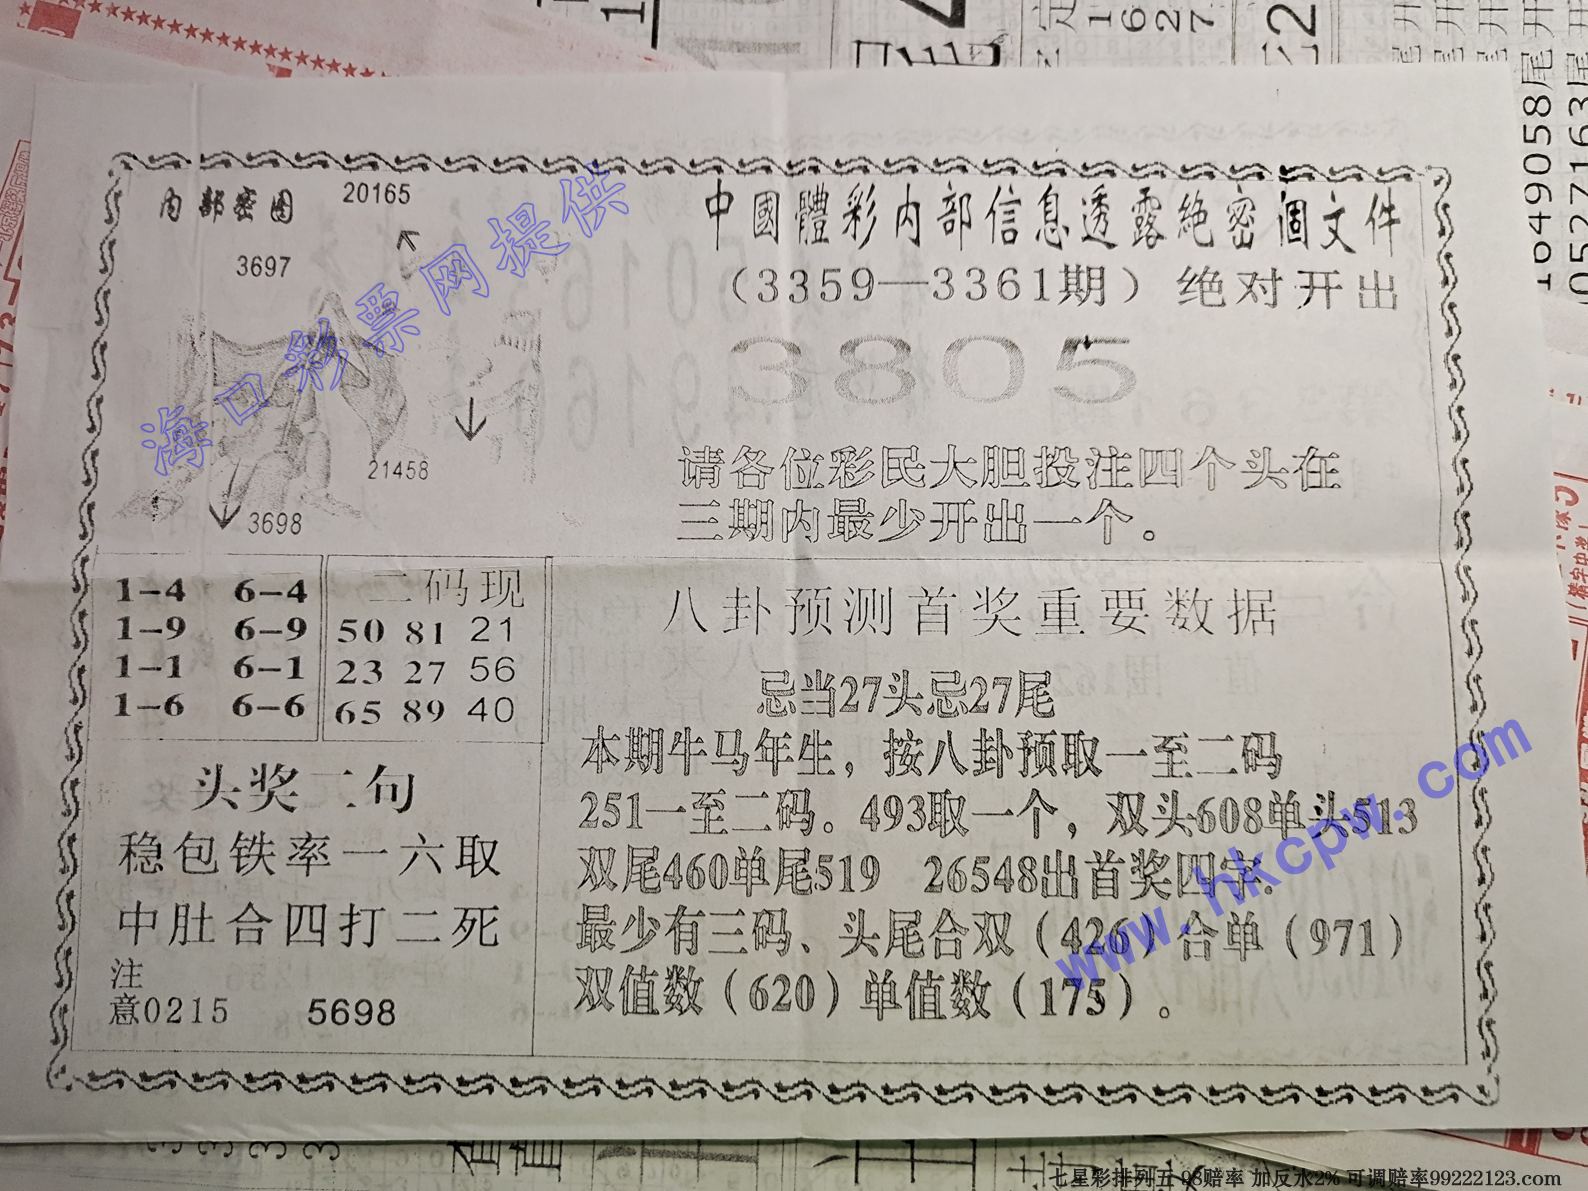 内部密图
20165
3697
21458
3698
中國體彩内部信息透露絶密個文件
（3359—3361期）绝对开出
3805
请各位彩民大胆投注四个头在
三期内最少开出一个。
1-4 6-4
1-9 6-9
1-1 6-1
1-6 6-6
二码现
50 81 21
23 27 56
65 89 40
头奖二句
稳包铁率一六取
中肚合四打二死
注
意0215 5698
八卦预测首奖重要数据
忌当27头忌27尾
本期牛马年生，按八卦预取一至二码
251一至二码。493取一个，双头608单头513
双尾460单尾519 26548出首奖四字.
最少有三码、头尾合双（426）合单（971）
双值数（620）单值数（175）。
海口彩票网提供
www.hkcpw.com
七星彩排列五 98赔率 加反水2% 可调赔率99222123.com